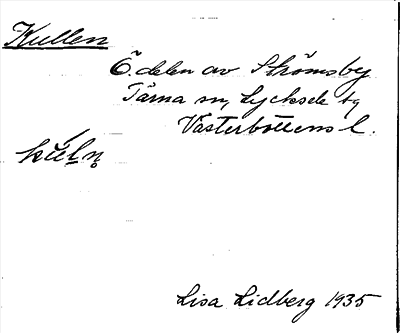 Kullen
Ö. delen av Strömsby
Tärna sn, Lycksele tg
Västerbottens l.
Lisa Lidberg 1935